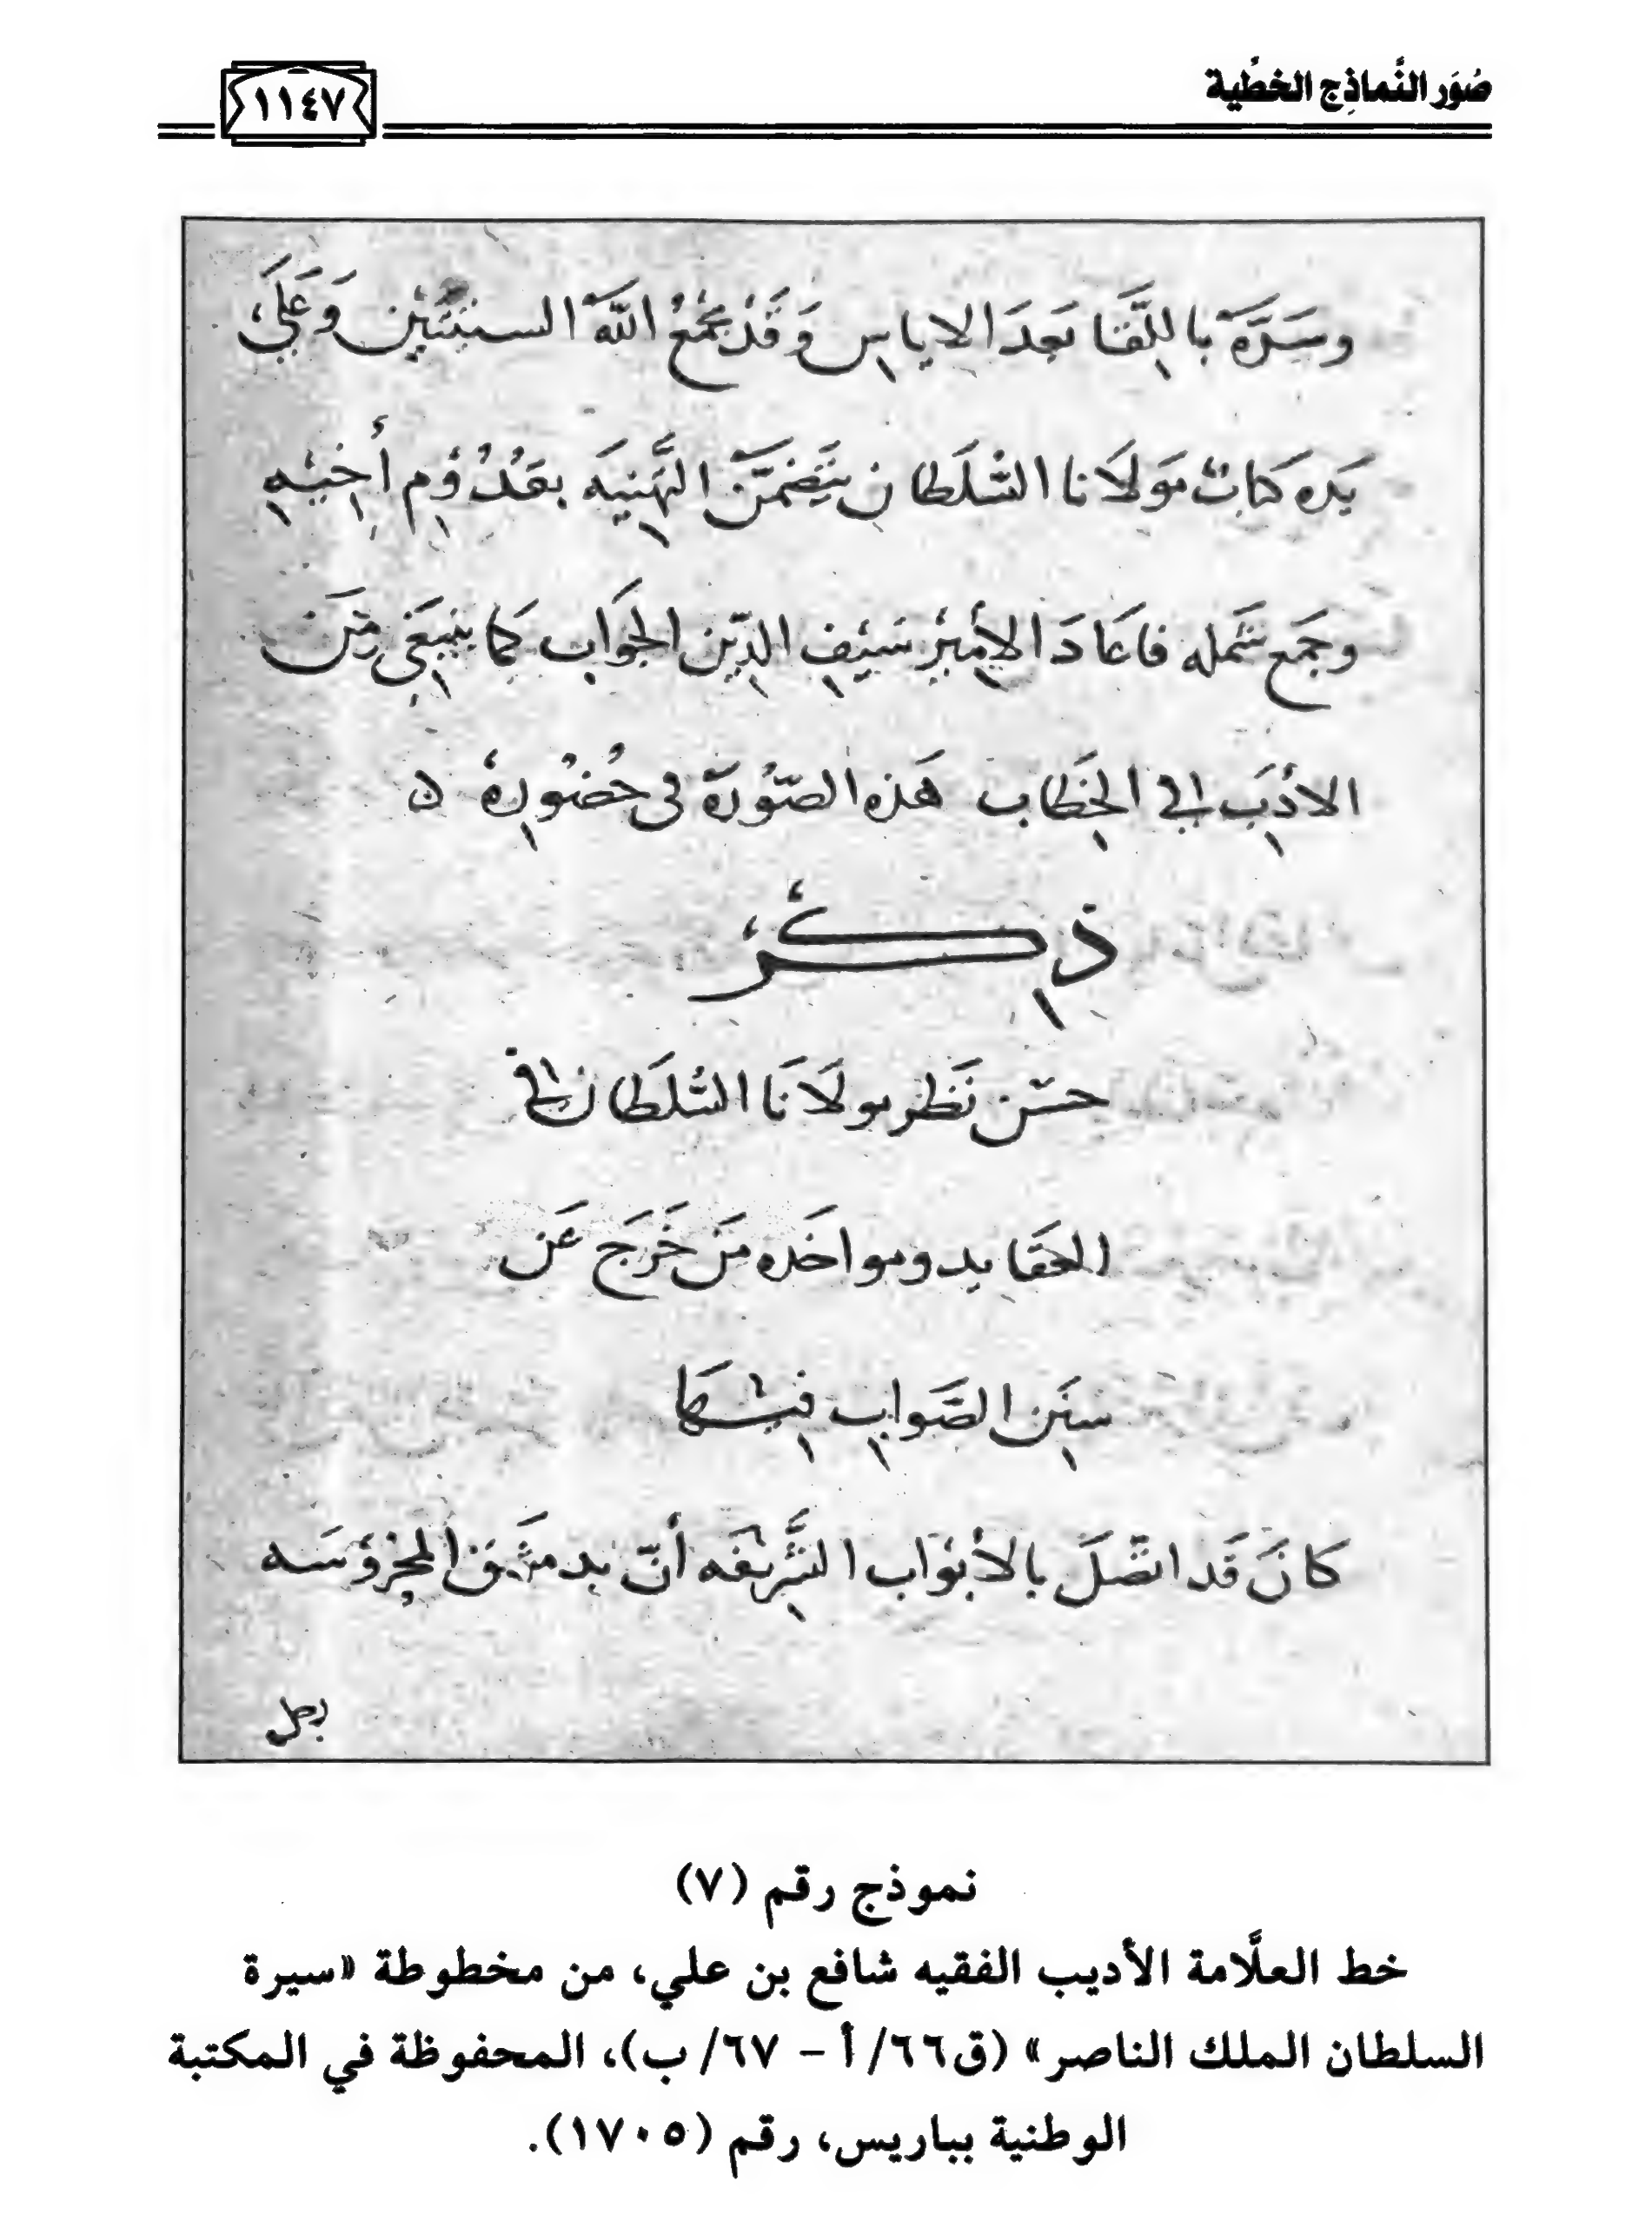 صُوَر النَّماذِج الخطِّية
١١٤٧
وسَرَّه باللِّقا بَعدَ الاياس وَقَد يَجمَعُ اللَّه الشتيتَين وَعَلَى
يَده كتابُ مَولاَنا السُّلطان يتَضمَّن التهَنِيَه بقُدُوْمِ أخِيْهِ
وجَمع شَمله فاعَادَ الأمِيرْ سَيْفِ الدِّين الجَوَاب كَما يَنبَغي مِنَ
الأدَبِ في الخِطَاب هَذه الصُّوْرَة في حُضُوْرِهْ
ذِكْرُ
حسْن نَظَر مولاَنَا السُّلطان في
العَقايد ومواخَذه مَن خَرَجَ عَن
سَنَنِ الصَّوابِ فيهَا
كانَ قَد اتصَّلَ بالأبْوَاب الشَّرِيْفَه أنّ بدمَشْق المحرُوْسَه
رجل
نموذج رقم (٧)
خط العلَّامة الأديب الفقيه شافع بن علي، من مخطوطة «سيرة
السلطان الملك الناصر» (ق٦٦/ أ - ٦٧/ ب)، المحفوظة في المكتبة
الوطنية بباريس، رقم (١٧٠٥).